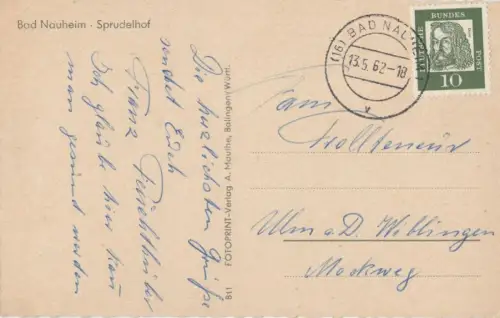 Bad Nauheim · Sprudelhof
Die herzlichsten Grüße
sendet Euch
Franz
Ich glaube hier kan
man gesund werden
B11 FOTOPRINT-Verlag A. Mauthe, Balingen/Württ.
(16) BAD NAUHEIM
13.5.62-18
DEUTSCHE
BUNDES
POST
10
Fam
Ulm a. D. Wiblingen
Mockweg